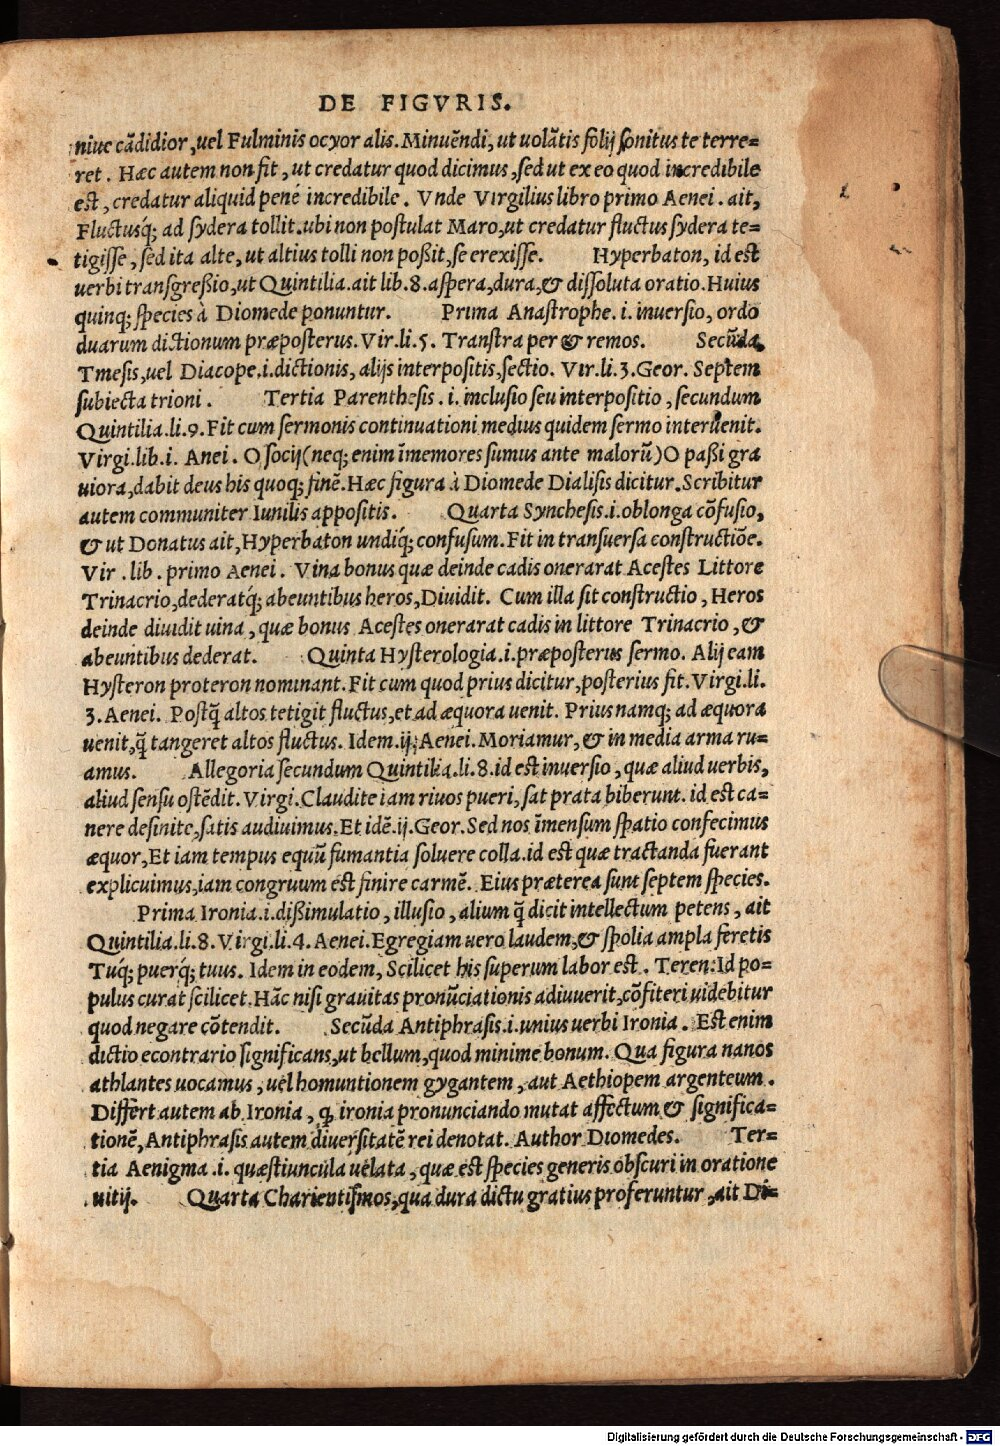 DE FIGVRIS.
niue cãdidior, uel Fulminis ocyor alis. Minuẽndi, ut uolãtis folij ſonitus te terre=
ret. Hæc autem non fit, ut credatur quod dicimus, ſed ut ex eo quod incredibile
eſt, credatur aliquid pené incredibile. Vnde Virgilius libro primo Aenei. ait,
Fluctuſq́; ad ſydera tollit. ubi non poſtulat Maro, ut credatur fluctus ſydera te=
tigiſſe, ſed ita alte, ut altius tolli non poßit, ſe erexiſſe. Hyperbaton, id eſt
uerbi tranſgreßio, ut Quintilia. ait lib. 8. aſpera, dura, & diſſoluta oratio. Huius
quinq; ſpecies à Diomede ponuntur. Prima Anaſtrophe. i. inuerſio, ordo
duarum dictionum præpoſterus. Vir. li. 5. Tranſtra per & remos. Secũda
Tmeſis, uel Diacope. i. dictionis, alijs interpoſitis, ſectio. Vir. li. 3. Geor. Septem
ſubiecta trioni. Tertia Parentheſis. i. incluſio ſeu interpoſitio, ſecundum
Quintilia. li. 9. Fit cum ſermonis continuationi medius quidem ſermo interuenit.
Virgi. lib. i. Anei. O ſocij (neq; enim ĩmemores ſumus ante malorũ) O paßi gra
uiora, dabit deus his quoq; finẽ. Hæc figura à Diomede Dialiſis dicitur. Scribitur
autem communiter Iunilis appoſitis. Quarta Syncheſis. i. oblonga cõfuſio,
& ut Donatus ait, Hyperbaton undiq́; confuſum. Fit in tranſuerſa conſtructiõe.
Vir. lib. primo Aenei. Vina bonus quæ deinde cadis onerarat Aceſtes Littore
Trinacrio, dederatq́; abeuntibus heros, Diuidit. Cum illa ſit conſtructio, Heros
deinde diuidit uina, quæ bonus Aceſtes onerarat cadis in littore Trinacrio, &
abeuntibus dederat. Quinta Hyſterologia. i. præpoſterus ſermo. Alij eam
Hyſteron proteron nominant. Fit cum quod prius dicitur, poſterius fit. Virgi. li.
3. Aenei. Poſtq̃ altos tetigit fluctus, et ad æquora uenit. Prius namq; ad æquora
uenit, q̃ tangeret altos fluctus. Idem. ij. Aenei. Moriamur, & in media arma ru=
amus. Allegoria ſecundum Quintilia. li. 8. id est inuerſio, quæ aliud uerbis,
aliud ſenſu oſtẽdit. Virgi. Claudite iam riuos pueri, ſat prata biberunt. id eſt ca=
nere deſinite, ſatis audiuimus. Et idẽ. ij. Geor. Sed nos ĩmenſum ſpatio confecimus
æquor, Et iam tempus equũ fumantia ſoluere colla. id eſt quæ tractanda fuerant
explicuimus, iam congruum eſt finire carmẽ. Eius præterea ſunt ſeptem ſpecies.
Prima Ironia. i. dißimulatio, illuſio, alium q̃ dicit intellectum petens, ait
Quintilia. li. 8. Virgi. li. 4. Aenei. Egregiam uero laudem, & ſpolia ampla feretis
Tuq́; puerq́; tuus. Idem in eodem, Scilicet his ſuperum labor eſt. Teren: Id po=
pulus curat ſcilicet. Hãc niſi grauitas pronũciationis adiuuerit, cõfiteri uidebitur
quod negare cõtendit. Secũda Antiphraſis. i. unius uerbi Ironia. Eſt enim
dictio econtrario ſignificans, ut bellum, quod minime bonum. Qua figura nanos
athlantes uocamus, uel homuntionem gygantem, aut Aethiopem argenteum.
Differt autem ab Ironia, q, ironia pronunciando mutat affectum & ſignifica=
tionẽ, Antiphraſis autem diuerſitatẽ rei denotat. Author Diomedes. Ter=
tia Aenigma. i. quæſtiuncula uelata, quæ eſt ſpecies generis obſcuri in oratione
uitij. Quarta Charientiſmos, qua dura dictu gratius proferuntur, ait Di=
Digitalisierung gefördert durch die Deutsche Forschungsgemeinschaft - DFG